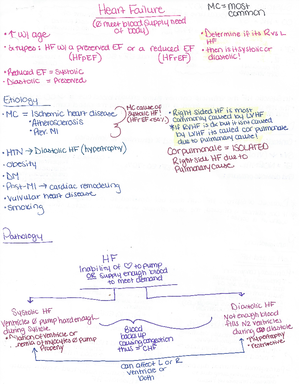 Heart Failure
(∅ meet blood supply need
of body)
MC = most
common
• ↑ w/ age
• 2 types: HF w/ a preserved EF or a reduced EF
(HFpEF) (HFrEF)
• Reduced EF = Systolic
• Diastolic = Preserved
• Determine if its R vs L
HF
• then is it systolic or
diastolic!
Etiology
• MC = Ischemic heart disease
• Atherosclerosis
• Prev. MI
MC cause of
systolic HF!
• HTN → Diastolic HF (hypertrophy)
• Obesity
• DM
• Post-MI → cardiac remodeling
• Valvular heart disease
• Smoking
• Right sided HF is most
commonly caused by LVHF
• If RVHF is but isnt caused
by LVHF, its called cor pulmonale
due to pulmonary cause!
Cor pulmonale = ISOLATED
Right side HF due to
Pulmonary cause
Pathology
HF
Inability of ♡ to pump
OR supply enough blood
to meet demand
Systolic HF
Ventricles ∅ pump hard enough
during systole
• Dilation of ventricle or
of myocytes ∅ pump
properly
Blood
backs up
causing congestion
thus = CHF
Diastolic HF
Not enough blood
fills ventricles
during diastole
• Hypertrophy
• restrictive
can affect L or R
ventricle or
both